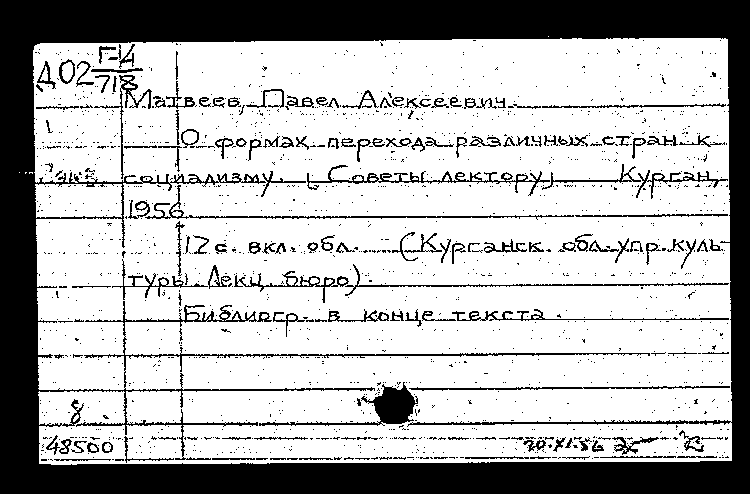 Д02 Г-4/718
Матвеев, Павел Алексеевич.
О формах перехода различных стран к
социализму. [Советы лектору] Курган,
1956.
12 с. вкл. обл. (Курганск. обл. упр. куль-
туры. Лекц. бюро).
Библиогр. в конце текста.
8
48500